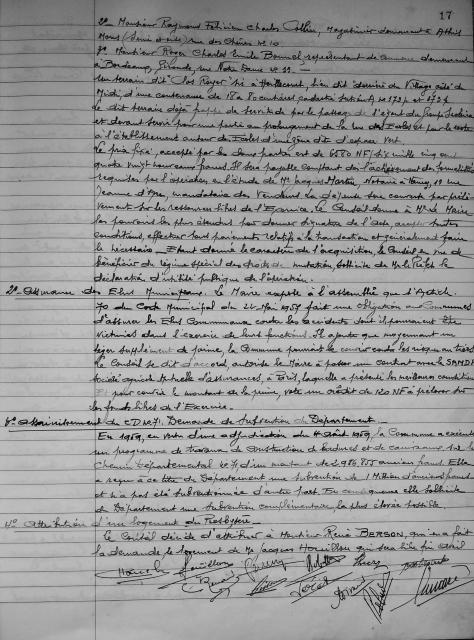 17
2° Monsieur Raymond Félicien Charles Collin, Magasinier demeurant à Athis
Mons (Seine et Oise) rue des Chênes N° 10
3° Monsieur Roger Charles Emile Bonnel, représentant de demeurant
à Bordeaux, Gironde, rue Notre Dame N°
Un terrain dit Clos Royer sis à lieu dit derrière du Village côté du
Midi, d'une contenance de 18 a 80 centiares cadastré section A N° 1721 et 1724
Le dit terrain déjà de servitude par le passage de l'égout du Groupe Scolaire
et devant servir pour une partie au prolongement de la rue des Ecoles et pour le reste
à l'établissement autour des Ecoles d'une zone dite d'espace vert.
Le prix fixé, accepté par les deux parties est de 6580 NF / six mille cinq cent
quatre vingt nouveaux francs. Il sera payable comptant dès l'achèvement des formalités
requises par l'opération en l'étude de Me Jacques Martin, Notaire à Nancy, 19 rue
Jeanne d'Arc, mandataire des Vendeurs. La dépense sera couverte par prélè-
vement sur les ressources libres de l'Exercice. Le Conseil donne à Mr le Maire
les pouvoirs les plus étendus pour donner signature de l'acte, accepter toutes
conditions, effectuer tout paiement relatif à la transaction et généralement faire
le nécessaire. Etant donné le caractère de l'acquisition, le Conseil en vue de
bénéficier du régime spécial des droits de mutation, sollicite de Mr le Préfet la
déclaration d'utilité publique de l'opération.
2° Assurance des Elus Municipaux. Le Maire expose à l'assemblée que l'Article
70 du Code Municipal du 22 Mai 1957 fait une obligation aux Communes
d'assurer les Elus Communaux contre les accidents dont ils peuvent être
victimes dans l'exercice de leurs fonctions. Il ajoute que moyennant un
léger supplément de prime, la Commune pourrait se couvrir contre les risques au tiers.
Le Conseil se dit d'accord, autorise le Maire à passer un contrat avec la SAMDA
Société agricole Mutuelle d'assurances, à Paris, laquelle a présenté les meilleures conditions
Et pour couvrir le montant de la prime, vote un crédit de 120 NF à prélever sur
les fonds libres de l'Exercice.
3° Assainissement du CD N° 71. Demande de Subvention du Département
En 1959, en vertu d'une adjudication du 11 Août 1959, la Commune a exécuté
un programme de travaux de construction de bordures et de caniveaux sur le
Chemin Départemental N° 71 d'un montant de 2.980.855 anciens francs. Elle
a reçu à ce titre du Département une subvention de 1 Million d'anciens francs
et n'a pas été subventionnée d'autre part. En conséquence elle sollicite
du Département une subvention complémentaire, la plus élevée possible.
4° Attribution d'un logement du Presbytère
Le Conseil décide d'attribuer à Monsieur René BERSON, qui en a fait
la demande le logement de Mr Jacques Houillon qui sera libre fin avril